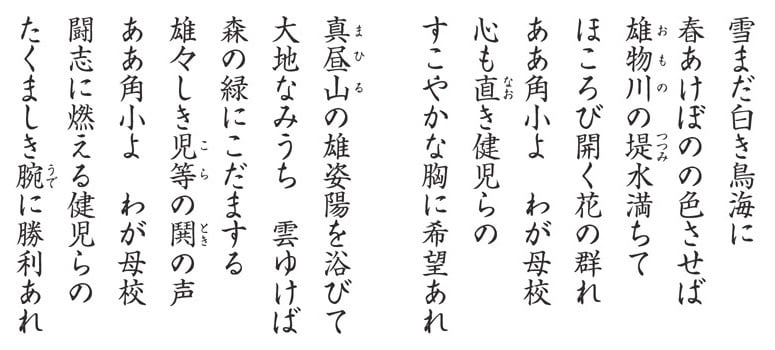 雪まだ白き鳥海に
春あけぼのの色させば
雄物川の堤水満ちて
ほころび開く花の群れ
ああ角小よ　わが母校
心も直き健児らの
すこやかな胸に希望あれ
真昼山の雄姿陽を浴びて
大地なみうち　雲ゆけば
森の緑にこだまする
雄々しき児等の鬨の声
ああ角小よ　わが母校
闘志に燃える健児らの
たくましき腕に勝利あれ